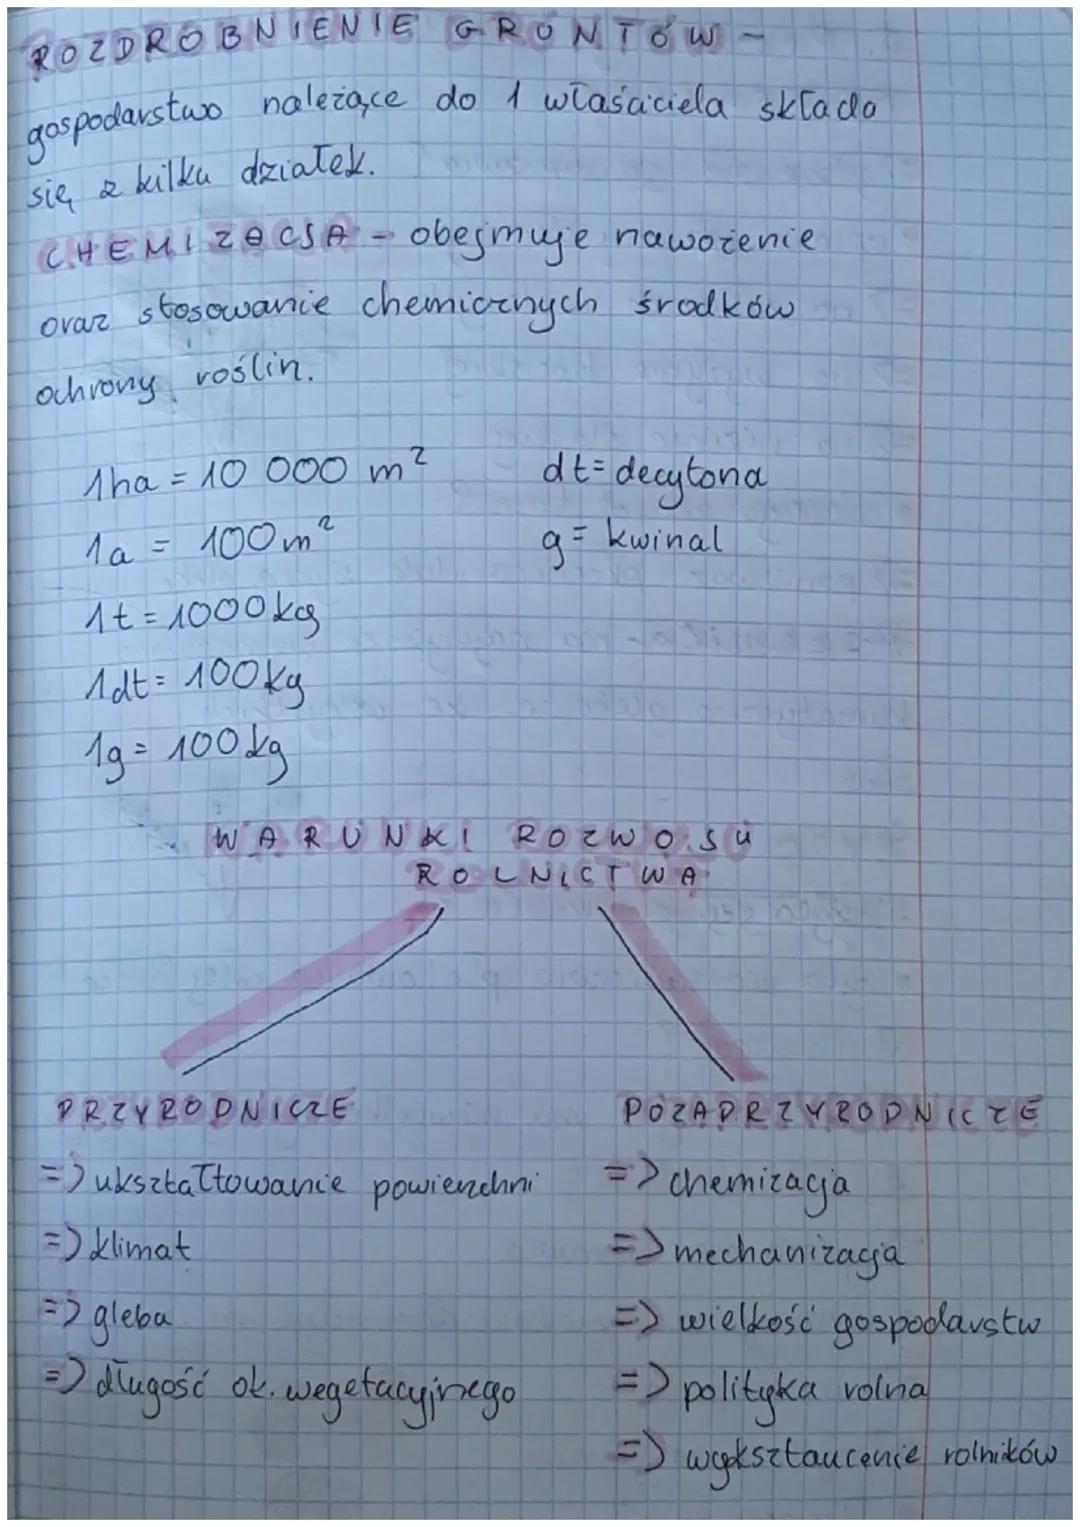 ROZDROBNIENIE GRUNTÓW -
gospodarstwo należące do 1 właściciela składa
się z kilku działek.
CHEMIZACJA - obejmuje nawożenie
oraz stosowanie chemicznych środków
ochrony roślin.
1ha = 10 000 m²
dt = decytona
1a = 100 m²
g = kwinal
1t = 1000 kg
1dt = 100 kg
1g = 100 kg
WARUNKI ROZWOJU
ROLNICTWA
PRZYRODNICZE
POZAPRZYRODNICZE
=> ukształtowanie powierzchni
=> chemizacja
=> klimat
=> mechanizacja
=> gleba
=> wielkość gospodarstw
=> długość ok. wegetacyjnego
=> polityka rolna
=> wykształcenie rolników